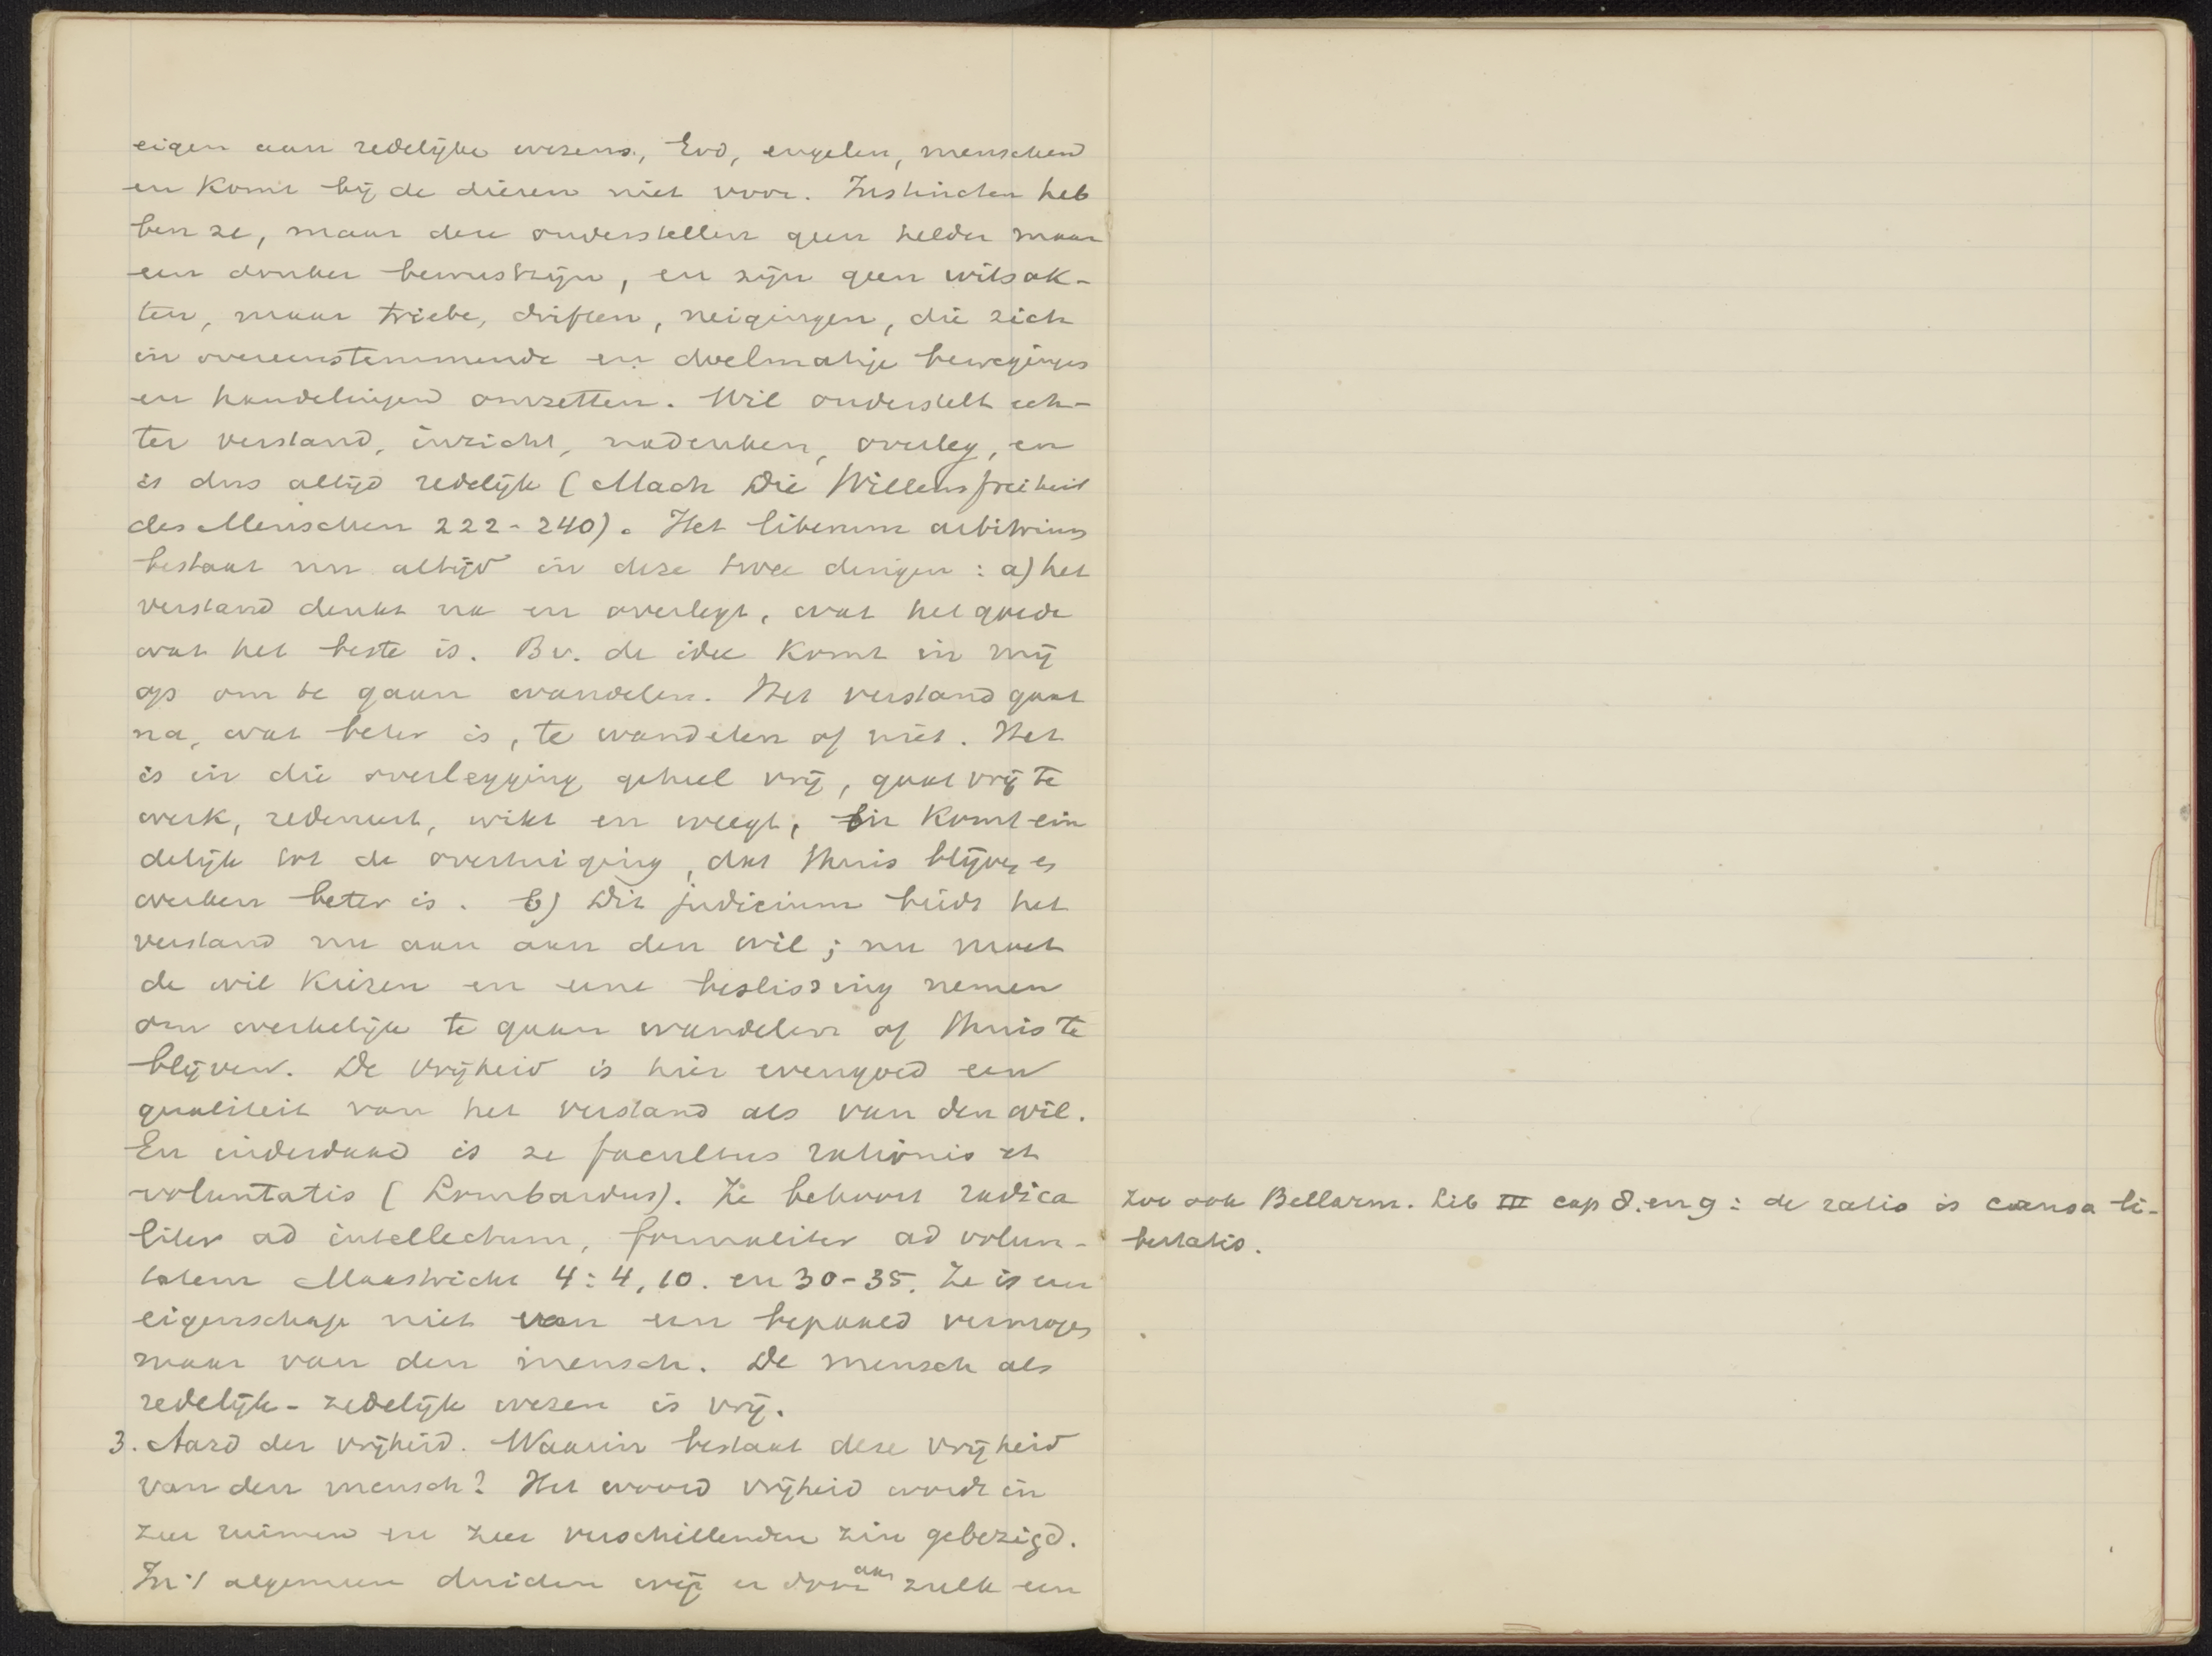 eigen aan redelijke wezens, God, engelen, menschen
en komt bij de dieren niet voor. Instincten heb
ben ze, maar deze onderstellen geen helder maar
een donker bewustzijn, en zijn geen wilsak-
ten, maar triebe, driften, neigingen, die zich
in overeenstemmende en doelmatige bewegingen
en handelingen omzetten. Wil onderstelt ech-
ter verstand, inzicht, nadenken, overleg, en
is dus altijd redelijk (Mach Die Willensfreiheit
des Menschen 222-240). Het liberum arbitrium
bestaat nu altijd in deze twee dingen: a) het
verstand denkt na en overlegt, wat het goede
wat het beste is. Bv. de idee komt in mij
op om te gaan wandelen. Het verstand gaat
na, wat beter is, te wandelen of niet. Het
is in die overlegging geheel vrij, gaat vrij te
werk, redeneert, wikt en weegt, en komt ein
delijk tot de overtuiging, dat thuis blijven en
werken beter is. b) Dit judicium biedt het
verstand nu aan aan den wil; nu moet
de wil kiezen en eene beslissing nemen
om werkelijk te gaan wandelen of thuis te
blijven. De vrijheid is hier evengoed een
qualiteit van het verstand als van den wil.
En inderdaad is ze facultas rationis et
voluntatis (Lombardus). Ze behoort radica
liter ad intellectum, formaliter ad volun-
tatem Maastricht 4:4,10. en 30-35. Ze is een
eigenschap niet van een bepaald vermogen
maar van den mensch. De mensch als
redelijk-zedelijk wezen is vrij.
3. Aard der vrijheid. Waarin bestaat deze vrijheid
van den mensch? Het woord vrijheid wordt in
zeer ruimen en zeer verschillenden zin gebezigd.
In 't algemeen duiden wij er door aan zulk een
Zoo ook Bellarm. Lib III cap 8. en 9: de ratio is causa li-
bertatis.